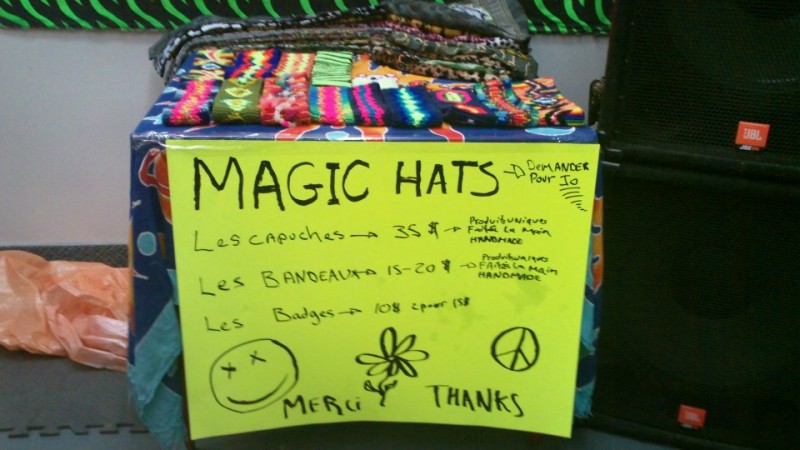 MAGIC HATS → DEMANDER
Pour Io
Les capuches → 35 $ → Produit uniques
Faità La Main
HANDMADE
Les BANDEAUX → 15-20 $ → Produit uniques
FAità La Main
HANDMADE
Les Badges → 10$ 2 pour 15$
MERCi THANKS
JBL
JBL